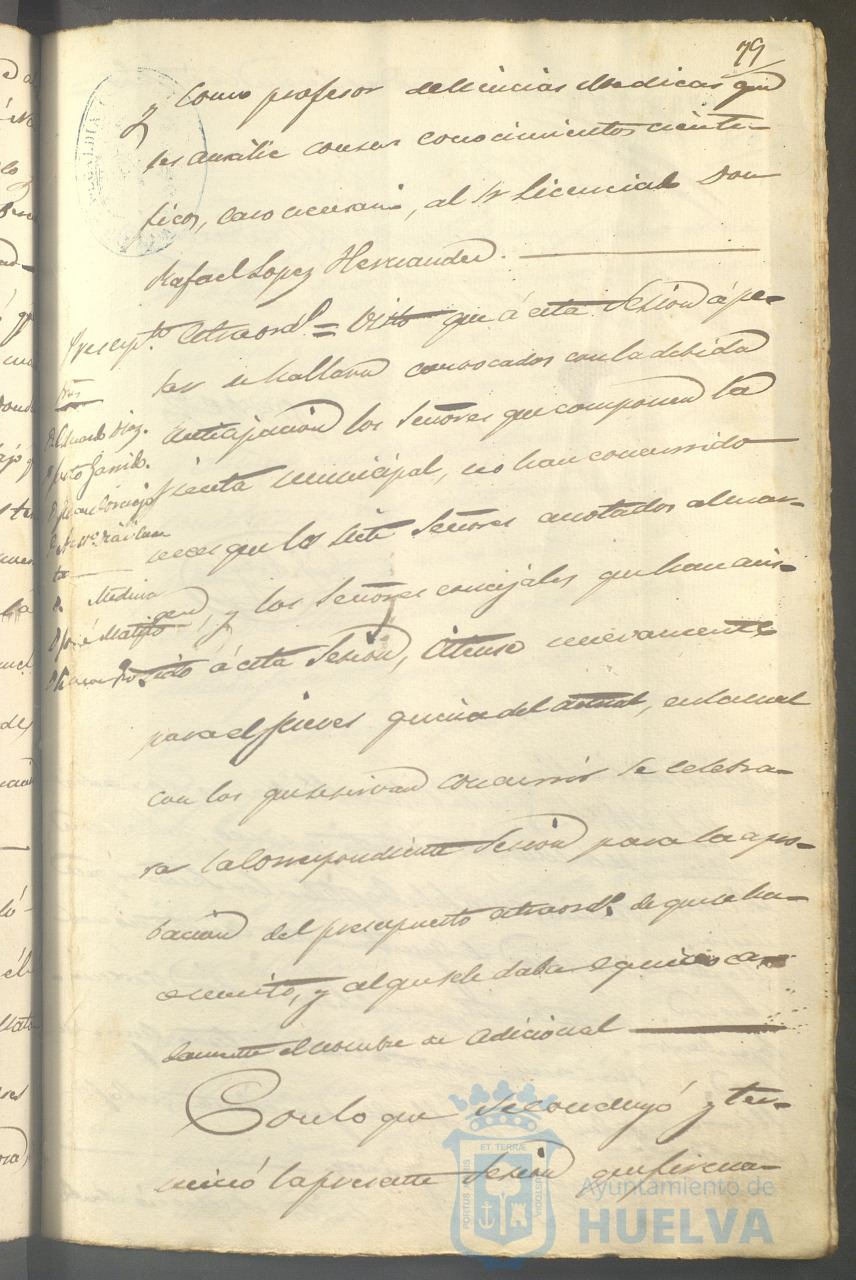 79
y como profesor de Ciencias Medicas que
les ausilie con sus conocimientos cienti-
ficos, caso necesario, al Sr Licenciado Don
Rafael Lopez Hernandez.
Presupto. Estraordo. = Visto que á esta Sesion á pe-
sar de hallarse convocados con la debida
anticipacion los Señores que componen la
Junta Municipal, no han concurrido
mas que los siete Señores anotados al mar-
gen, y los Señores concejales que han asis-
tido á esta Sesion, Citense nuevamente
para el jueves quince del actual, en la cual
con los que se sirvan concurrir se celebra-
ra la Correspondiente Sesion para la apro-
bacion del presupuesto estraordo. de que se ha
escrito, y al que se le daba equivoca-
damente el nombre de Adicional
Con lo que se concluyó y ter-
minó la presente Sesion que firma-
Sres
D. Eduardo Diaz.
D. Justo Garrido.
D. Juan Cornejo
D.
ta
D. Medina
D. José Matito
D.
ALCALDIA
PORTUS MARIS
ET TERRÆ
CUSTODIA
Ayuntamiento de
HUELVA